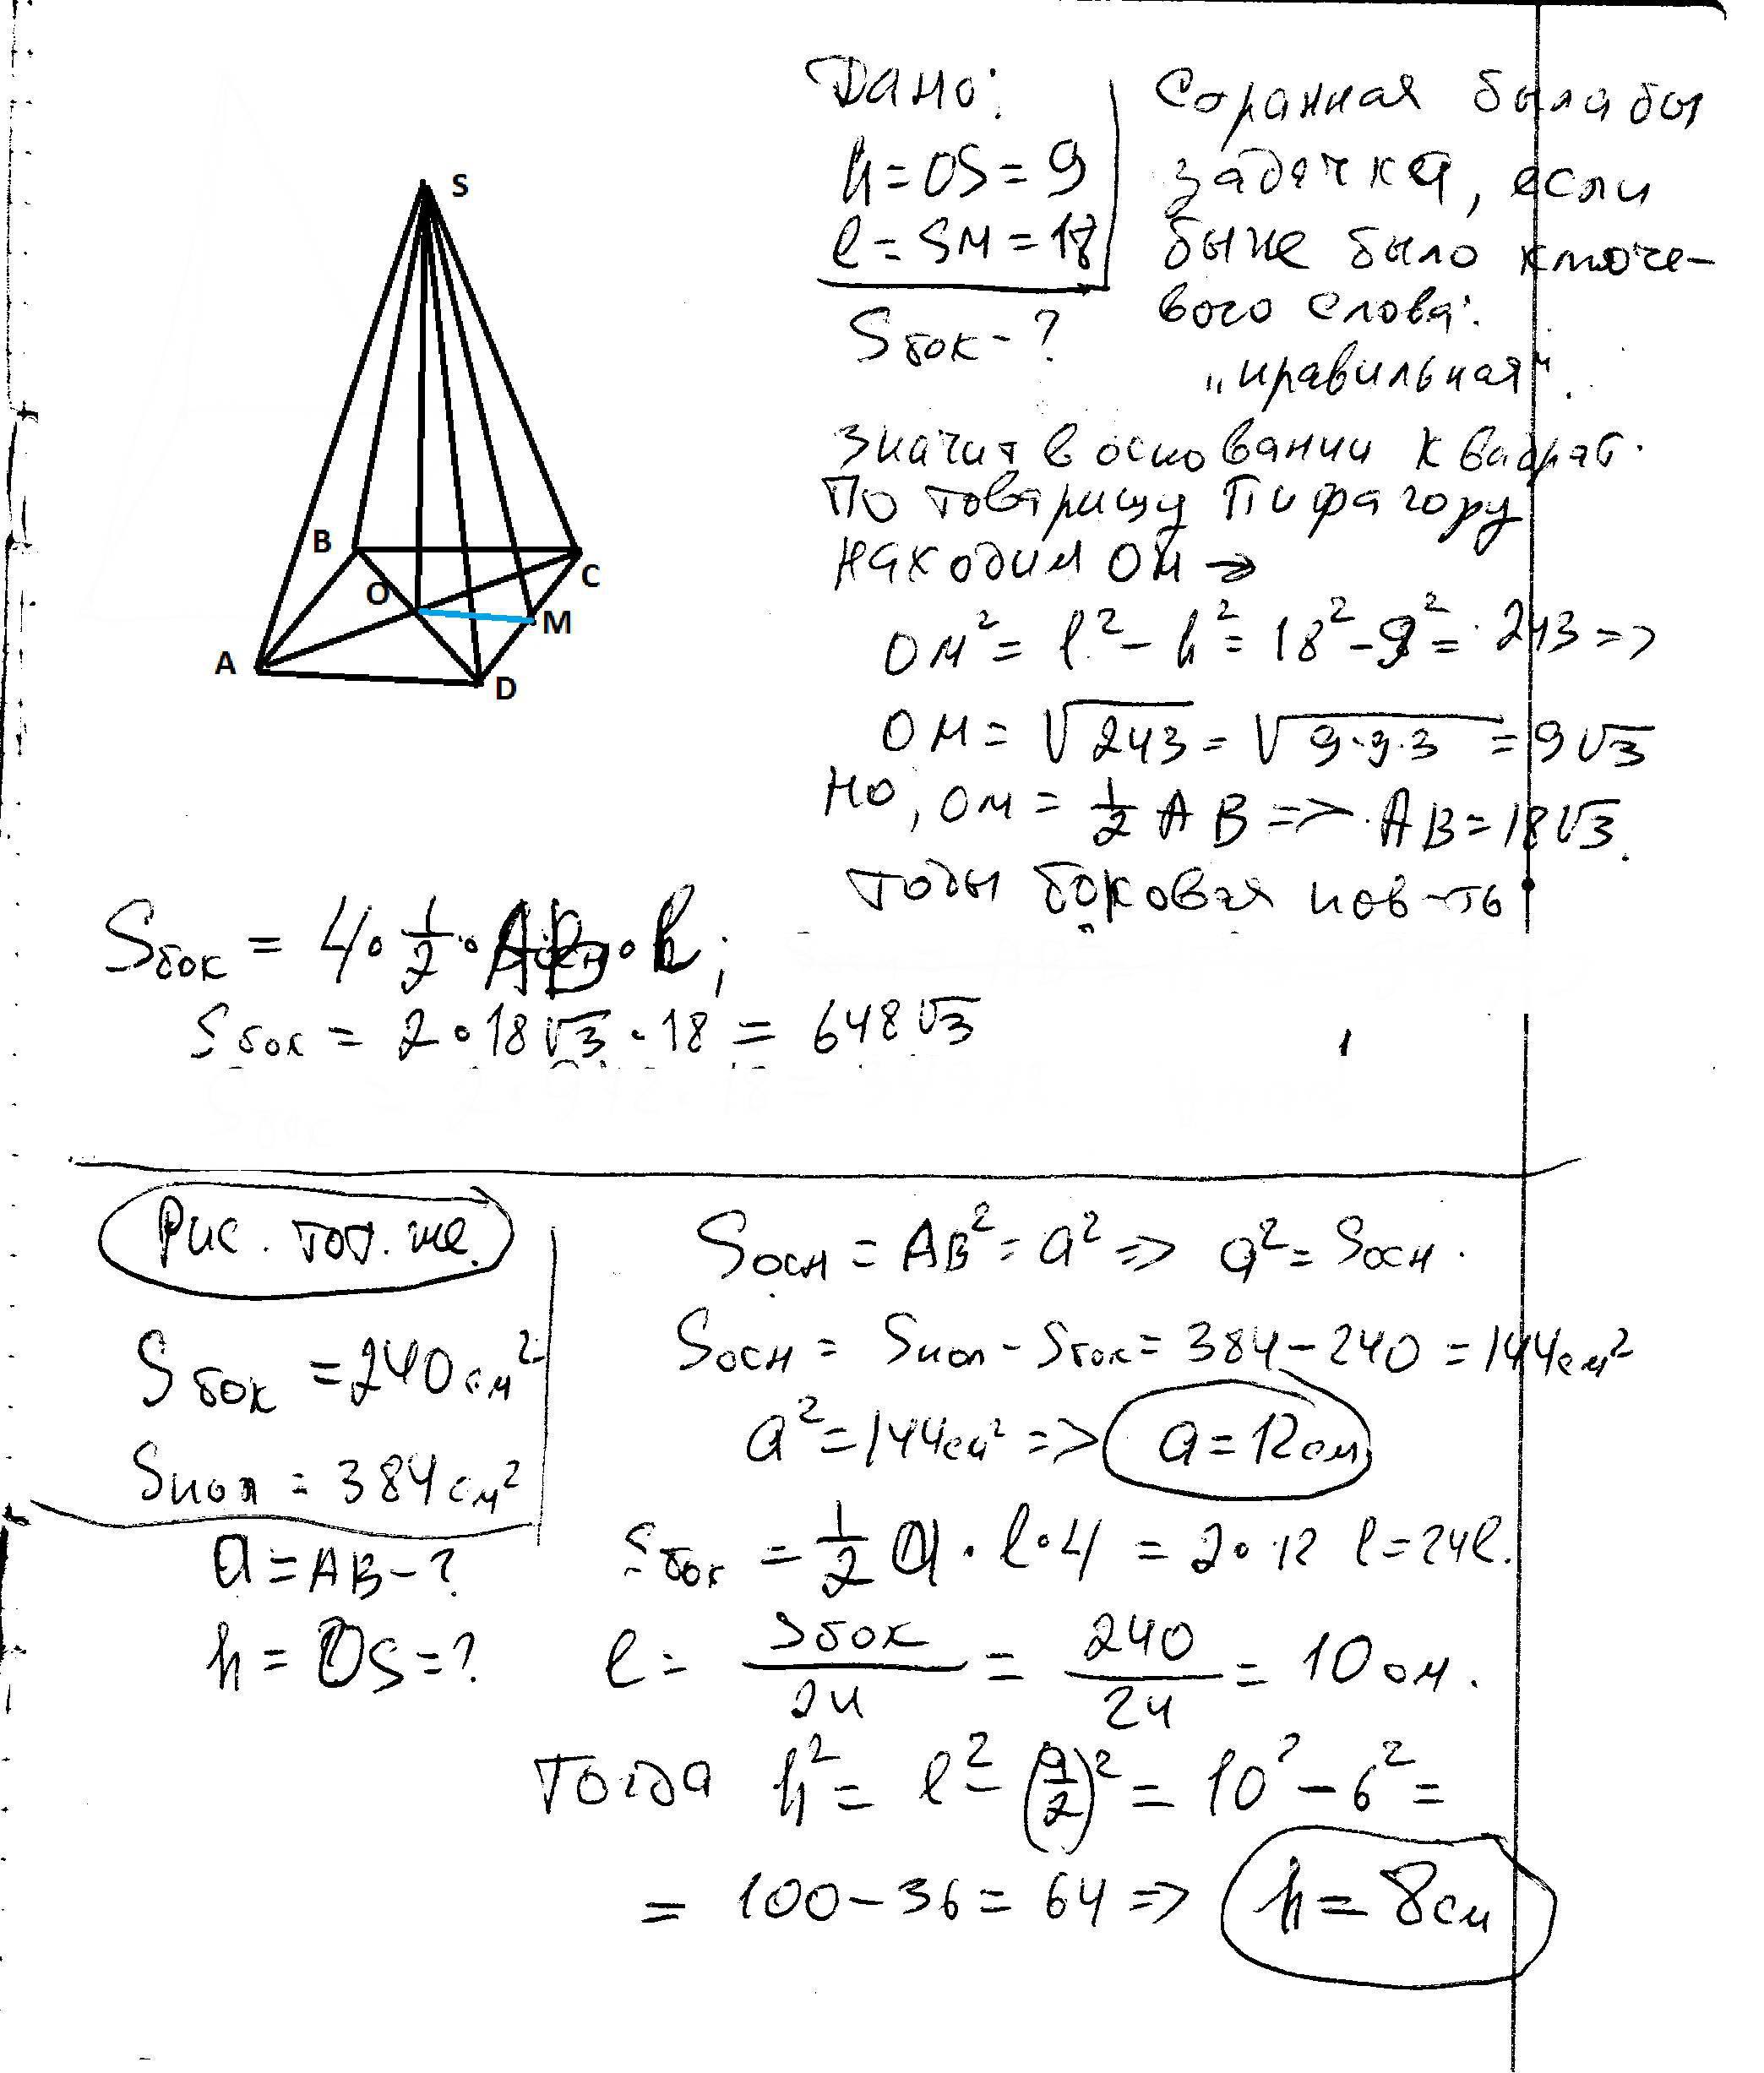 S
B
C
O
M
A
D
Дано:
h = OS = 9
l = SM = 18
Sбок - ?
Соранная была бы
задачка, если
бы не было ключе-
вого слова:
„правильная".
Значит в основании квадрат.
По товарищу Пифагору
находим OM →
OM² = l² - h² = 18² - 9² = 243 =>
OM = √243 = √9·9·3 = 9√3
Но, OM = 1/2 AB => AB = 18√3.
тогда боковая пов-ть
Sбок = 4·1/2·AB·l;
Sбок = 2·18√3·18 = 648√3
Рис. тот. же.
Sбок = 240 см²
Sпол = 384 см²
a = AB - ?
h = OS = ?
Sосн = AB² = a² => a² = Sосн.
Sосн = Sпол - Sбок = 384 - 240 = 144 см²
a² = 144 см² => a = 12 см
Sбок = 1/2 a·l·4 = 2·12 l = 24l.
l = Sбок/24 = 240/24 = 10 см.
Тогда h² = l² - (a/2)² = 10² - 6² =
= 100 - 36 = 64 => h = 8 см